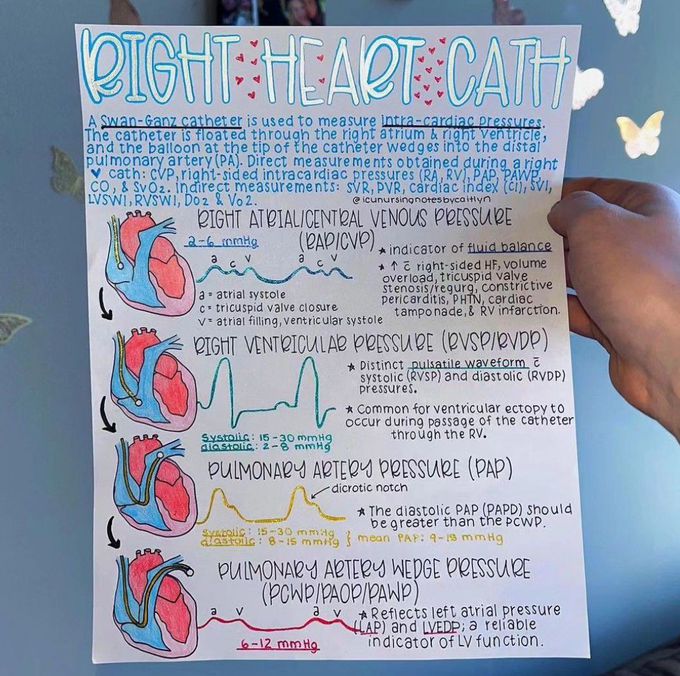 RIGHT HEART CATH
A Swan-Ganz catheter is used to measure intra-cardiac pressures.
The catheter is floated through the right atrium & right ventricle,
and the balloon at the tip of the catheter wedges into the distal
pulmonary artery (PA). Direct measurements obtained during a right
♥ cath: CVP, right-sided intracardiac pressures (RA, RV), PAP, PAWP,
CO, & SvO2. indirect measurements: SVR, PVR, cardiac index (CI), SVI,
LVSWI, RVSWI, Do2 & Vo2.
@icunursingnotesbycaitlyn
RIGHT ATRIAL/CENTRAL VENOUS PRESSURE
(RAP/CVP)
2-6 mmHg
a c v a c v
a = atrial systole
c = tricuspid valve closure
v = atrial filling, ventricular systole
★ indicator of fluid balance
★ ↑ c̄ right-sided HF, volume
overload, tricuspid valve
stenosis/regurg, constrictive
pericarditis, PHTN, cardiac
tamponade, & RV infarction.
RIGHT VENTRICULAR PRESSURE (RVSP/RVDP)
★ Distinct pulsatile waveform c̄
systolic (RVSP) and diastolic (RVDP)
pressures.
★ Common for ventricular ectopy to
occur during passage of the catheter
through the RV.
Systolic: 15-30 mmHg
diastolic: 2-8 mmHg
PULMONARY ARTERY PRESSURE (PAP)
dicrotic notch
★ The diastolic PAP (PAPD) should
be greater than the PCWP.
Systolic: 15-30 mmHg
diastolic: 8-15 mmHg } mean PAP: 9-18 mmHg
PULMONARY ARTERY WEDGE PRESSURE
(PCWP/PAOP/PAWP)
a v a v
6-12 mmHg
★ Reflects left atrial pressure
(LAP) and LVEDP; a reliable
indicator of LV function.